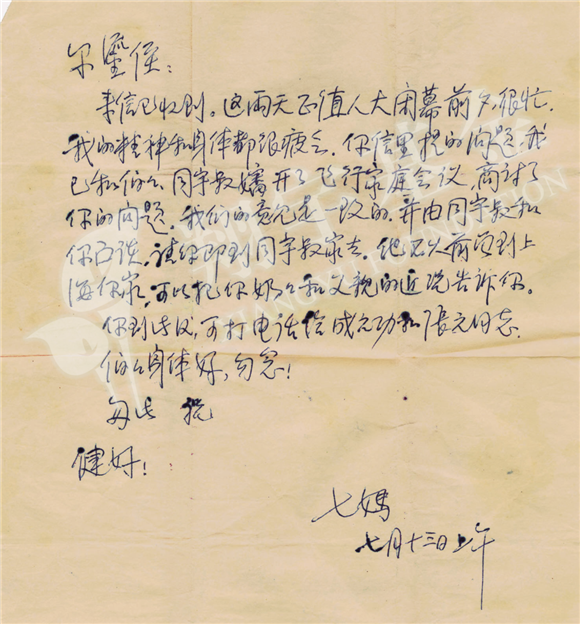 尔鎏侄：
来信已收到。这两天正值人大闭幕前夕，很忙，
我的精神和身体都很疲乏。你信里提的问题，我
已和伯伯、同宇叔婶开了飞行家庭会议，商讨了
你的问题。我们的意见是一致的，并由同宇叔和
你面谈，请你即到同宇叔家去。他不久前曾到上
海你家，可以把你奶奶和父亲的近况告诉你。
你到时，可打电话给成元功和张元同志。
伯伯身体好，勿念！
匆此 祝
健好！
七妈
七月十三日上午